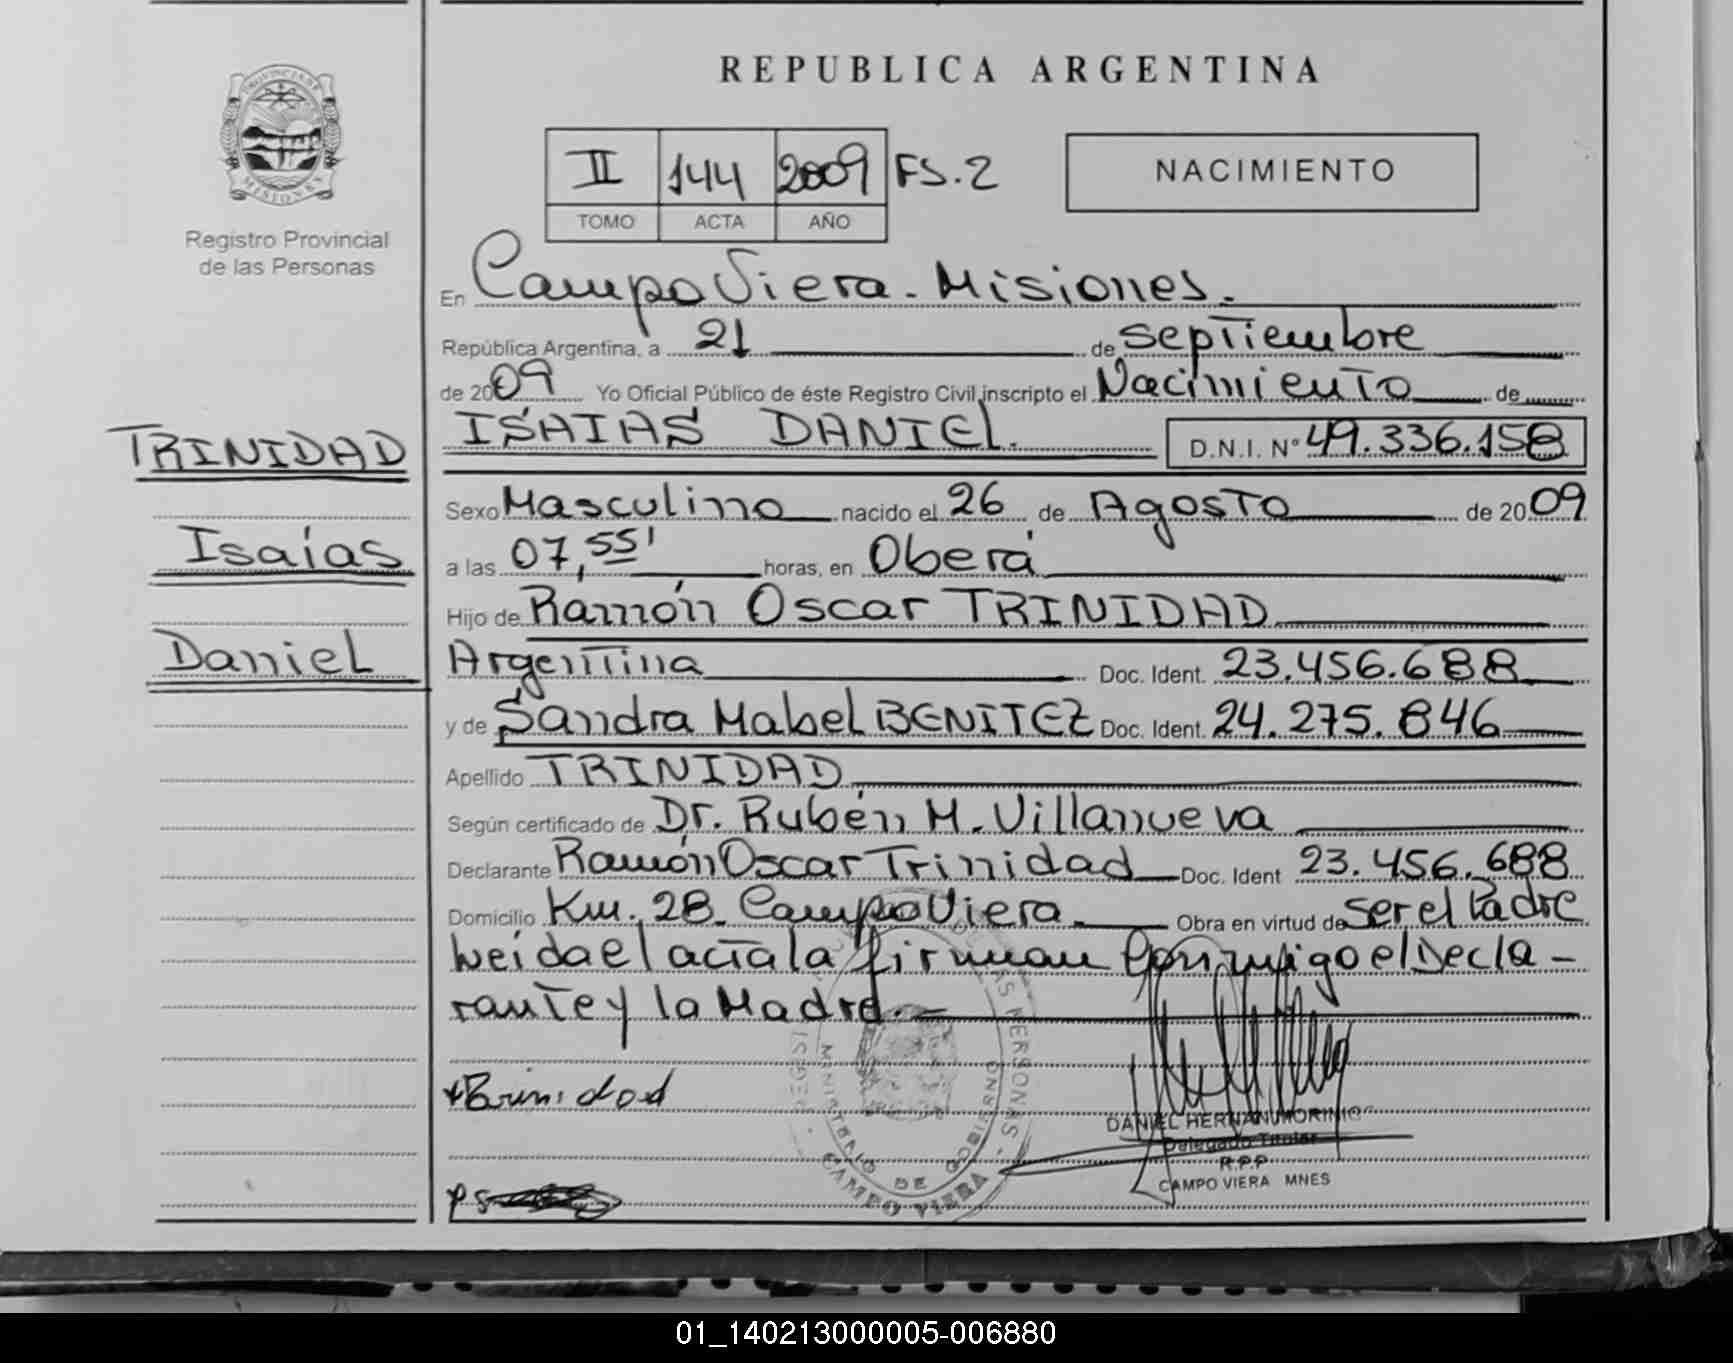 REPUBLICA ARGENTINA
PROVINCIA DE MISIONES
Registro Provincial
de las Personas
II 144 2009 FS. 2
TOMO ACTA AÑO
NACIMIENTO
En Campo Viera - Misiones.
República Argentina, a 21 de septiembre
de 2009 Yo Oficial Público de éste Registro Civil inscripto el Nacimiento de
ISAIAS DANIEL. D.N.I. N° 49.336.158
TRINIDAD
Isaías
Daniel
Sexo Masculino nacido el 26 de Agosto de 2009
a las 07,55' horas, en Oberá
Hijo de Ramón Oscar TRINIDAD
Argentina Doc. Ident. 23.456.688
y de Sandra Mabel BENITEZ Doc. Ident. 24.275.846
Apellido TRINIDAD
Según certificado de Dr. Rubén M. Villanueva
Declarante Ramón Oscar Trinidad Doc. Ident 23.456.688
Domicilio Km. 28 Campo Viera Obra en virtud de ser el Padre
Leída el acta la firman Conmigo el Decla-
rante y la Madre.
Trinidad
MINISTERIO DE GOBIERNO
CAMPO VIERA
DANIEL HERNAN MORINIGO
Delegado Titular
R.P.P
CAMPO VIERA MNES
01_140213000005-006880